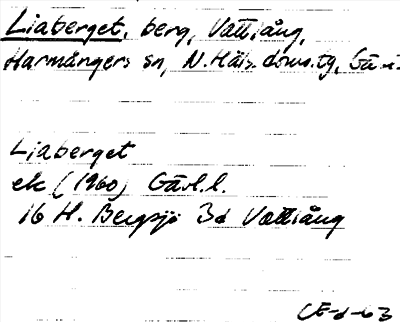 Liaberget, berg, Vattlång,
Harmångers sn, N. Häls. doms.tg, Gä.
Liaberget
ek (1960) Gävl.l.
16 H. Bergsjö 3d Vattlång